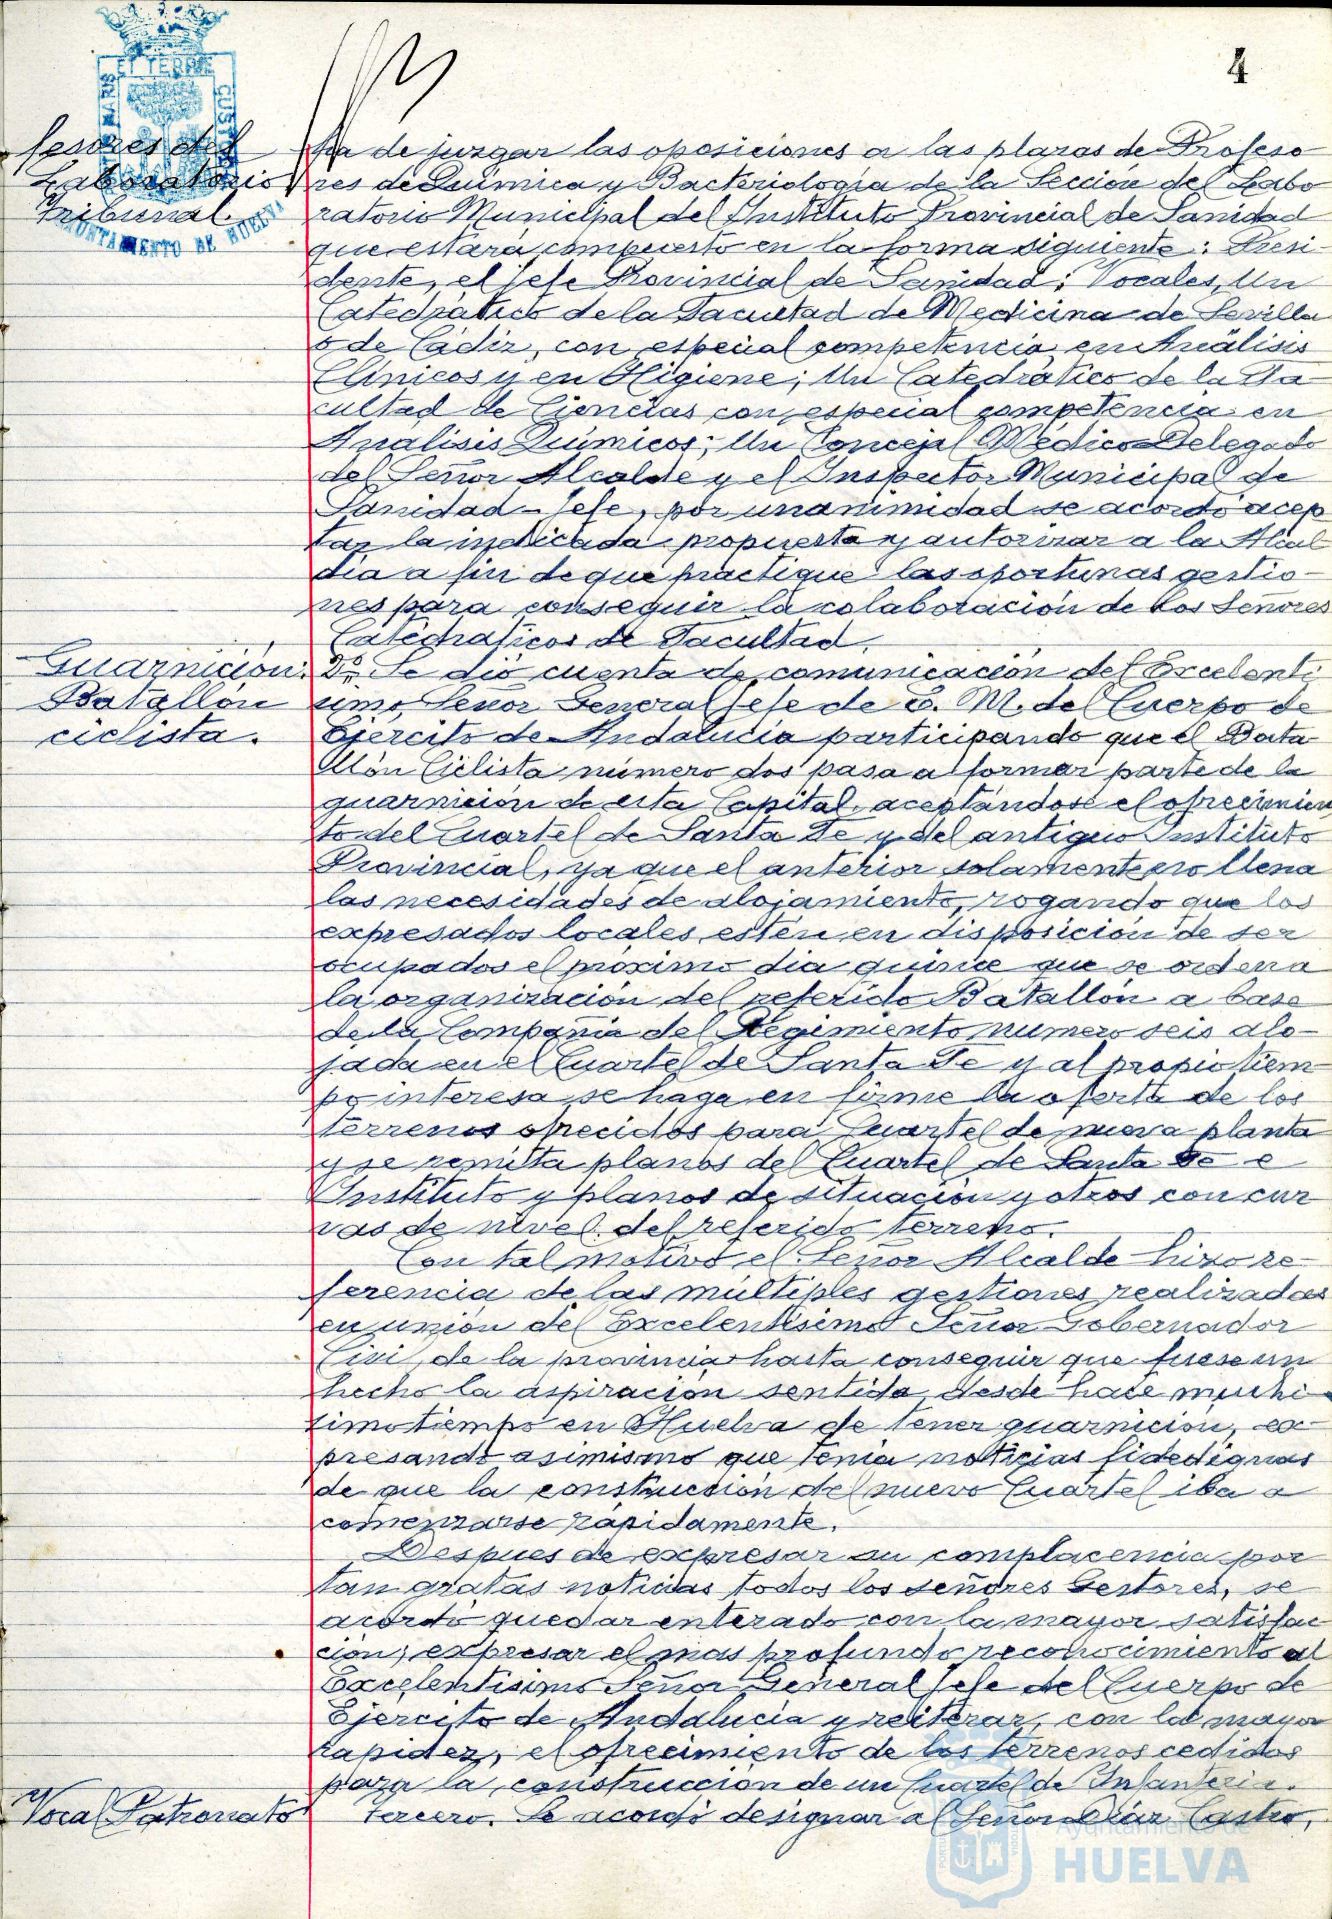 4
fesores del
Laboratorio
Tribunal.
PORTUS MARIS ET TERRAE CUSTODIA
AYUNTAMIENTO DE HUELVA
ha de juzgar las oposiciones a las plazas de Profeso
res de Química y Bacteriología de la Sección del Labo
ratorio Municipal del Instituto Provincial de Sanidad
que estará compuesto en la forma siguiente: Presi-
dente, el Jefe Provincial de Sanidad; Vocales, Un
Catedrático de la Facultad de Medicina de Sevilla
o de Cádiz, con especial competencia en Análisis
Clínicos y en Higiene; Un Catedrático de la Fa-
cultad de Ciencias con especial competencia en
Analisis Químicos; Un Concejal Médico Delegado
del Señor Alcalde y el Inspector Municipal de
Sanidad-Jefe, por unanimidad se acordó acep
tar la indicada propuesta y autorizar a la Alcal
día a fin de que practique las oportunas gestio-
nes para conseguir la colaboración de los Señores
Catedráticos de Facultad.
Guarnición.
Batallón
ciclista.
2º. Se dió cuenta de comunicación del Excelentí
simo Señor General Jefe de E. M. del Cuerpo de
Ejercito de Andalucía participando que el Bata
llón Ciclista número dos pasa a formar parte de la
guarnición de esta Capital, aceptándose el ofrecimien
to del Cuartel de Santa Fe y del antiguo Instituto
Provincial, ya que el anterior solamente no llena
las necesidades de alojamiento, rogando que los
expresados locales estén en disposición de ser
ocupados el próximo día quince que se ordena
la organización del referido Batallón a base
de la Compañía del Regimiento número seis alo-
jada en el Cuartel de Santa Fe y al propio tiem-
po interesa se haga en firme la oferta de los
terrenos ofrecidos para Cuartel de nueva planta
y se remita planos del Cuartel de Santa Fe e
Instituto y planos de situación y otros con cur
vas de nivel del referido terreno.
Con tal motivo el Señor Alcalde hizo re-
ferencia de las múltiples gestiones realizadas
en unión del Excelentísimo Señor Gobernador
Civil de la provincia hasta conseguir que fuese un
hecho la aspiración sentida desde hace muchí-
simo tiempo en Huelva de tener guarnición, ex-
presando asimismo que tenía noticias fidedignas
de que la construcción del nuevo Cuartel iba a
comenzarse rápidamente.
Despues de expresar su complacencia por
tan gratas noticias todos los señores Gestores, se
acordó quedar enterado con la mayor satisfac
ción; expresar el mas profundo reconocimiento al
Excelentísimo Señor General Jefe del Cuerpo de
Ejercito de Andalucía y reiterar, con la mayor
rapidez, el ofrecimiento de los terrenos cedidos
para la construcción de un Cuartel de Infantería.
Vocal Patronato
Tercero. Se acordó designar al Señor Díaz Castro,
Ayuntamiento de
HUELVA